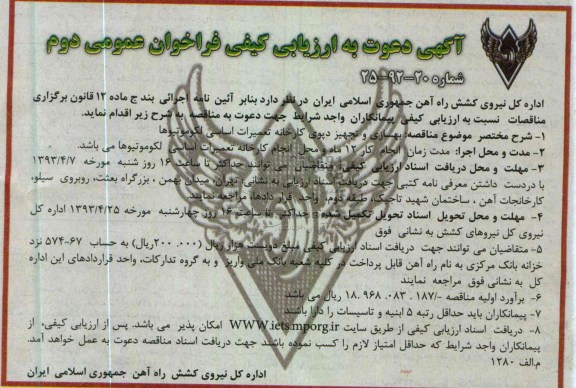 آگهی دعوت به ارزیابی کیفی فراخوان عمومی دوم
شماره ۲۰-۹۲-۲۵
اداره کل نیروی کشش راه آهن جمهوری اسلامی ایران در نظر دارد بنابر آئین نامه اجرائی بند ج ماده ۱۲ قانون برگزاری
مناقصات نسبت به ارزیابی کیفی پیمانکاران واجد شرایط جهت دعوت به مناقصه به شرح زیر اقدام نماید.
۱- شرح مختصر موضوع مناقصه: بهسازی و تجهیز دپوی کارخانه تعمیرات اساسی لکوموتیوها
۲- مدت و محل اجرا: مدت زمان انجام کار ۱۲ ماه و محل انجام کارخانه تعمیرات اساسی لکوموتیوها می باشد.
۳- مهلت و محل دریافت اسناد ارزیابی کیفی: متقاضیان می توانند حداکثر تا ساعت ۱۶ روز شنبه مورخه ۱۳۹۳/۴/۷
با دردست داشتن معرفی نامه کتبی جهت دریافت اسناد ارزیابی به نشانی: تهران، میدان بهمن ، بزرگراه بعثت، روبروی سیلو،
کارخانجات آهن ، ساختمان شهید تاجیک، طبقه دوم، واحد قرار دادها، مراجعه نمایند
۴- مهلت و محل تحویل اسناد تحویل تکمیل شده: حداکثر تا ساعت ۱۶ روز چهارشنبه مورخه ۱۳۹۳/۴/۲۵ اداره کل
نیروی کل نیروهای کشش به نشانی فوق
۵- متقاضیان می توانند جهت دریافت اسناد ارزیابی کیفی مبلغ دویست هزار ریال (۲۰۰.۰۰۰ریال) به حساب ۶۷-۵۷۴ نزد
خزانه بانک مرکزی به نام راه آهن قابل پرداخت در کلیه شعبه بانک ملی واریز و به گروه تدارکات، واحد قراردادهای این اداره
کل به نشانی فوق مراجعه نمایند
۶- برآورد اولیه مناقصه -/۱۸۷ .۰۸۳ .۹۶۸ .۱۸ ریال می باشد
۷- پیمانکاران باید حداقل رتبه ۵ ابنیه و تاسیسات را دارا باشند
۸- دریافت اسناد ارزیابی کیفی از طریق سایت WWW.iets.mporg.ir امکان پذیر می باشد. پس از ارزیابی کیفی، از
پیمانکاران واجد شرایط که حداقل امتیاز لازم را کسب نموده باشند جهت دریافت اسناد مناقصه دعوت به عمل خواهد آمد.
م.الف ۱۲۸۰
اداره کل نیروی کشش راه آهن جمهوری اسلامی ایران